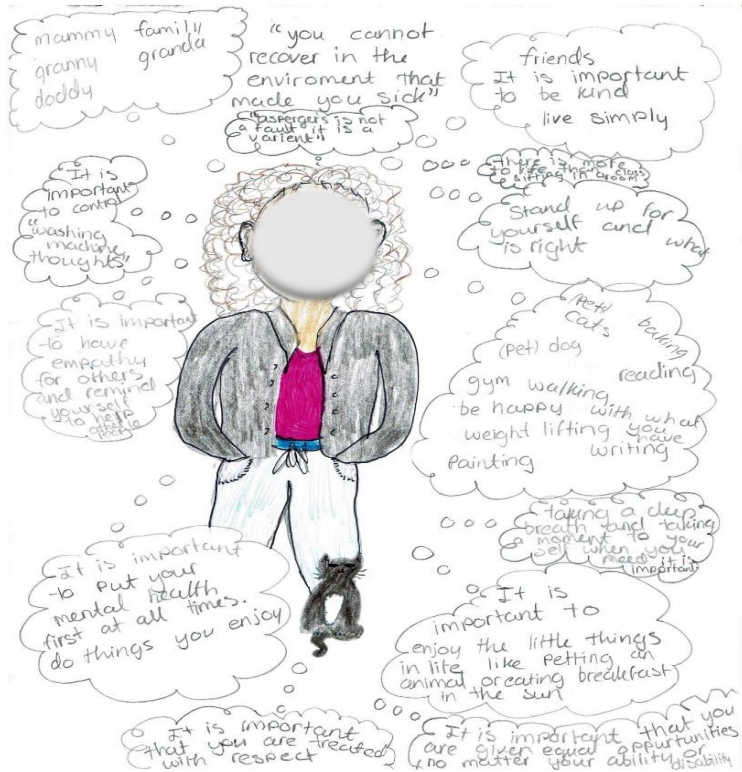 mammy family
granny granda
daddy
"you cannot
recover in the
enviroment that
made you sick"
"aspergers is not
a fault it is a
varient"
friends
It is important
to be kind
live simply
there is more
to life than
sitting in a room
Stand up for
yourself and what
is right
It is
important
to control
"washing
machine
thoughts"
It is important
to have
empathy
for others
and remind
yourself
to help
other people
(pet) baking
cats
(pet) dog
reading
gym walking
be happy with what
weight lifting you have
painting writing
taking a deep
breath and taking
a moment to your
self when you
need it is
important
It is important
to put your
mental health
first at all times.
do things you enjoy
It is
important to
enjoy the little things
in life like petting an
animal or eating breakfast
in the sun
It is important
that you are treated
with respect
It is important that you
are given equal oppurtunities
no matter your ability or
disability